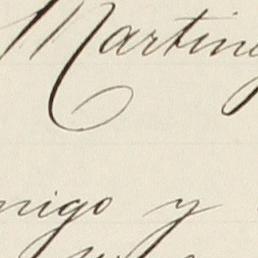 Martin
migo y